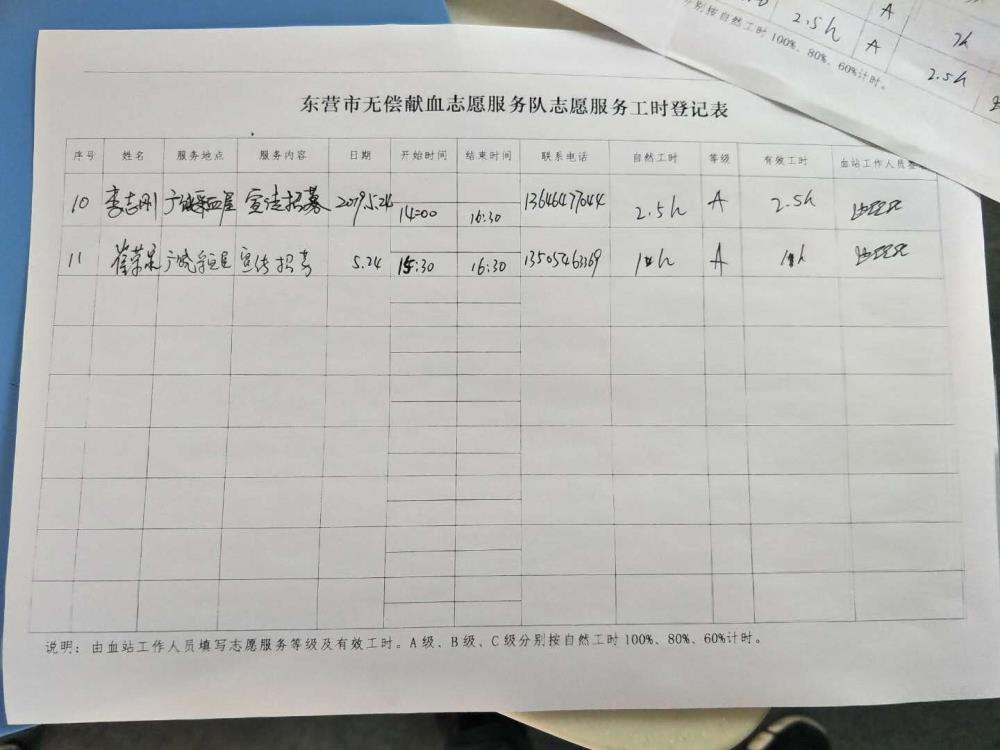 2.5h A
2h
分别按自然工时 100%、80%、60%计时。
A 2.5h
东营市无偿献血志愿服务队志愿服务工时登记表
序号 姓名 服务地点 服务内容 日期 开始时间 结束时间 联系电话 自然工时 等级 有效工时 血站工作人员签
10 李志刚 广饶采血屋 宣传招募 2019.5.24 14:00 16:30 13646477044 2.5h A 2.5h
11 崔荣泉 广饶 宣传招募 5.24 15:30 16:30 13505463369 1h A 1h
说明：由血站工作人员填写志愿服务等级及有效工时。A 级、B 级、C 级分别按自然工时 100%、80%、60%计时。